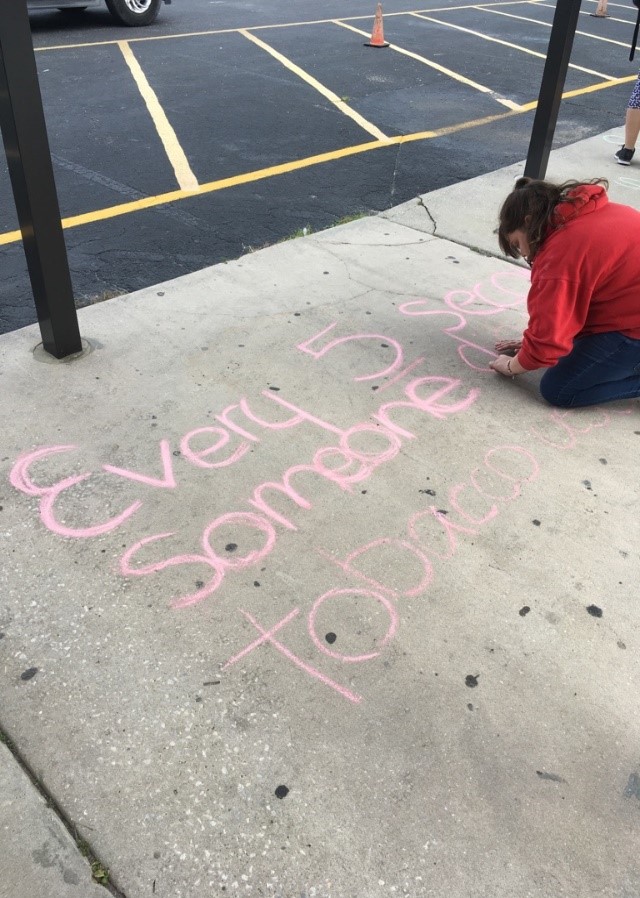 Every 5 sec
Someone d
tobacco u